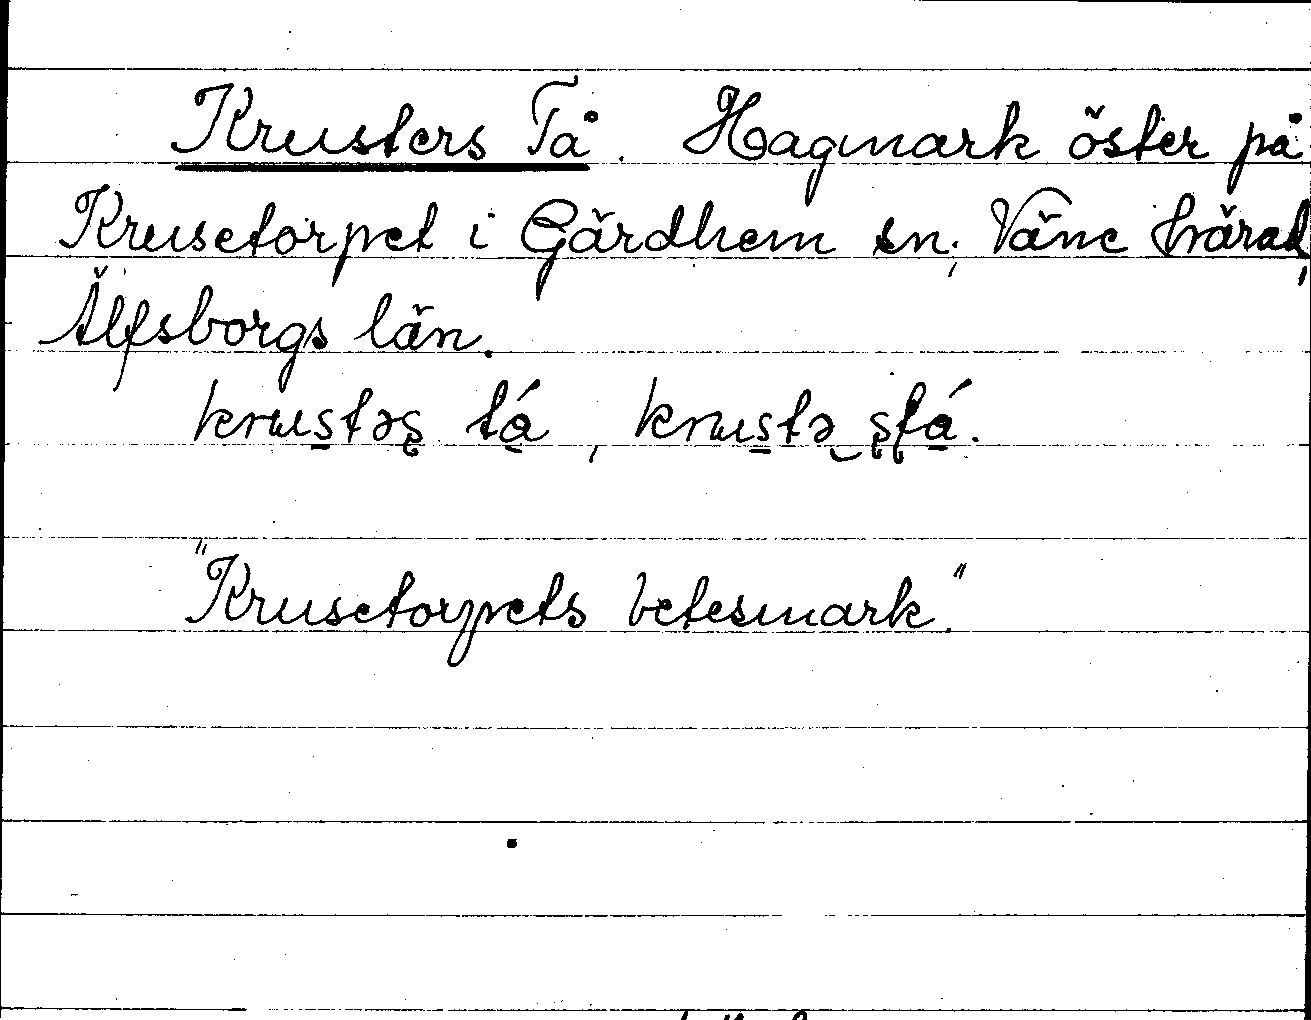 Krusters Tå. Hagmark öster på
Krusetorpet i Gärdhem sn, Väne härad,
Älfsborgs län.
krusтəʂ tá, krustə‿ʂʈá.
"Krusetorpets betesmark."